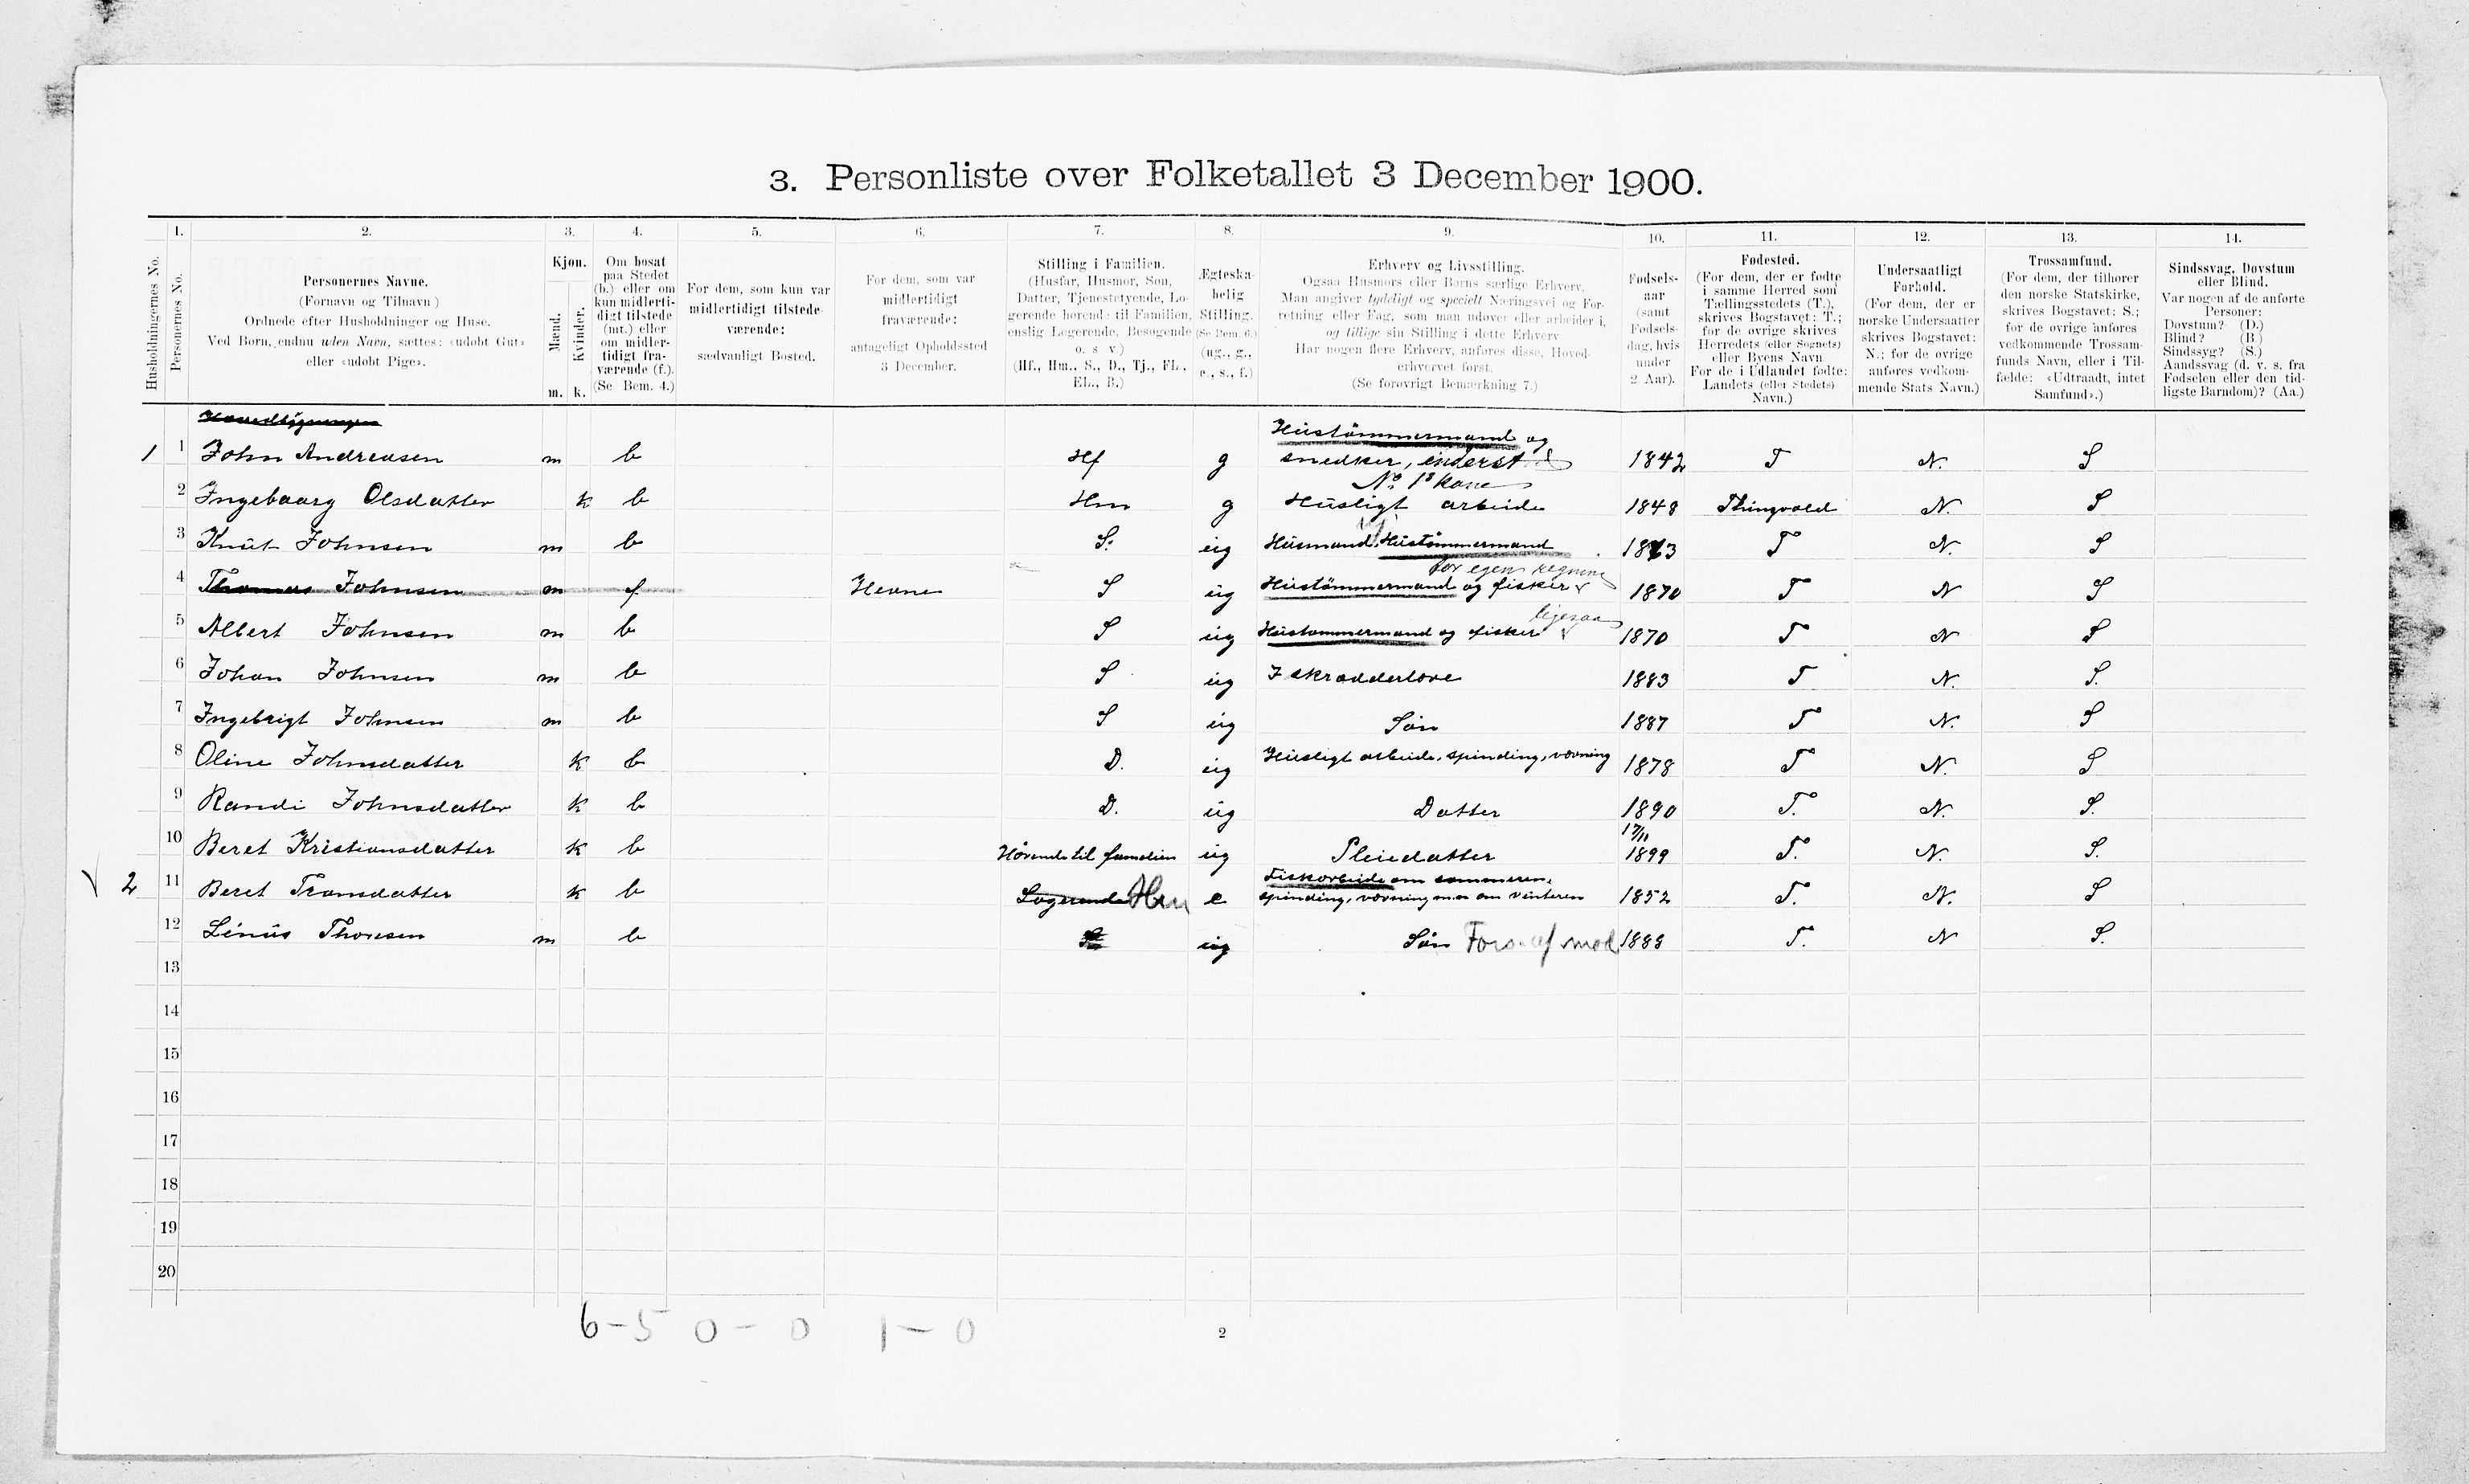 3. Personliste over Folketallet 3 December 1900.
1. 2. 3. 4. 5. 6. 7. 8. 9. 10. 11. 12. 13. 14.
Husholdningernes No.
Personernes No.
Personernes Navne.
(Fornavn og Tilnavn)
Ordnede efter Husholdninger og Huse.
Ved Børn, endnu uden Navn, sættes: «udøbt Gut»
eller «udøbt Pige».
Kjøn.
Mænd.
Kvinder.
m. k.
Om bosat
paa Stedet
(b.) eller om
kun midlerti-
digt tilstede
(mt.) eller
om midler-
tidigt fra-
værende (f.).
(Se Bem. 4.)
For dem, som kun var
midlertidigt tilstede-
værende:
sædvanligt Bosted.
For dem, som var
midlertidigt
fraværende:
antageligt Opholdssted
3 December.
Stilling i Familien.
(Husfar, Husmor, Søn,
Datter, Tjenestetyende, Lo-
gerende hørende til Familien,
enslig Logerende, Besøgende
o. s. v.)
(Hf., Hm., S., D., Tj., FL.,
EL., B.)
Ægteska-
belig
Stilling.
(Se Bem. 6.)
(ug., g.,
e., s., f.)
Erhverv og Livsstilling.
Ogsaa Husmors eller Børns særlige Erhverv.
Man angiver tydeligt og specielt Næringsvei og For-
retning eller Fag, som man udøver eller arbeider i,
og tillige sin Stilling i dette Erhverv
Har nogen flere Erhverv, anføres disse, Hoved-
erhvervet først.
(Se forøvrigt Bemærkning 7.)
Fødsels-
aar
(samt
Fødsels-
dag, hvis
under
2 Aar).
Fødested.
(For dem, der er fødte
i samme Herred som
Tællingsstedets (T.),
skrives Bogstavet: T.;
for de øvrige skrives
Herredets (eller Sognets)
eller Byens Navn
For de i Udlandet fødte:
Landets (eller Stedets)
Navn.)
Undersaatligt
Forhold.
(For dem, der er
norske Undersaatter
skrives Bogstavet:
N.; for de øvrige
anføres vedkom-
mende Stats Navn.)
Trossamfund.
(For dem, der tilhører
den norske Statskirke,
skrives Bogstavet: S.;
for de øvrige anføres
vedkommende Trossam-
funds Navn, eller i Til-
fælde: «Udtraadt, intet
Samfund».)
Sindssvag, Døvstum
eller Blind.
Var nogen af de anførte
Personer:
Døvstum? (D.)
Blind? (B.)
Sindssyg? (S.)
Aandssvag (d. v. s. fra
Fødselen eller den tid-
ligste Barndom)? (Aa.)
Hüstömmermand og
1 1 John Andreasen m b Hf g snedker, inderst 1842 T N. S
No. 18 Kone
2 Ingebaarg Olsdatter k b Hm g Hüsligt arbeide 1848 Thingvold N. S
3 Knüt Johnsen m b S. üg Hüsmand, Hüstömmermand 1873 T N. S
for egen regning
4 Thomas Johnsen m f Hevne S üg Hüstömmermand og fisker 1870 T N S
ligesaa
5 Albert Johnsen m b S üg Hüstommermand og fisker 1870 T N S
6 Johan Johnsen m b S üg I skrædderlære 1883 T N. S.
7 Ingebrigt Johnsen m b S üg Søn 1887 T N. S
8 Oline Johnsdatter k b D. üg Hüsligt arbeide, spinding, vævning 1878 T N. S
9 Randi Johnsdatter k b D. üg Datter 1890 T. N. S.
17/11
10 Beret Kristiansdatter k b Hörende til familien üg Pleiedatter 1899 T. N. S.
Fiskarbeide om sommeren,
2 11 Beret Tronsdatter k b Logerende Hm e spinding, vævning m.m om vinteren 1852 T. N. S
12 Linüs Thoresen m b üg Søn Fors. af mod 1888 T. N S.
13
14
15
16
17
18
19
20
6-5 0-0 1-0
2